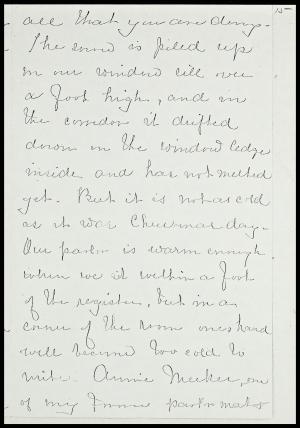 all that you are doing.
15
The snow is piled up
on our window sill over
a foot high, and in
the corridor it drifted
down on the window ledge
inside and has not melted
yet. But it is not as cold
as it was Christmas day.
Our parlor is warm enough
when we sit within a foot
of the register, but in a
corner of the room one's hand
will become too cold to
write. Annie Meeker, one
of my former parlor mates